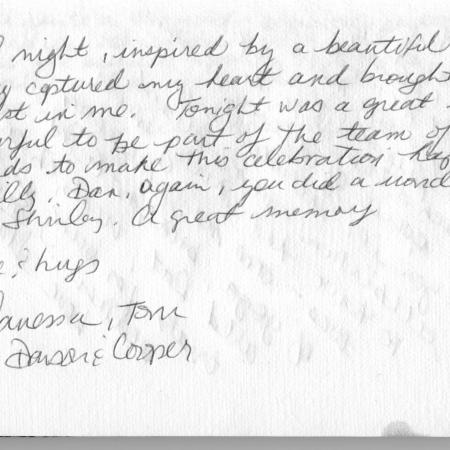 night, inspired by a beautiful
captured my heart and brought
st in me. Tonight was a great
rful to be part of the team of
ds to make this celebration hap
lly. Dan, again, you did a wond
Shirley. A great memory
e & hugs
anessa, Tom
Cooper